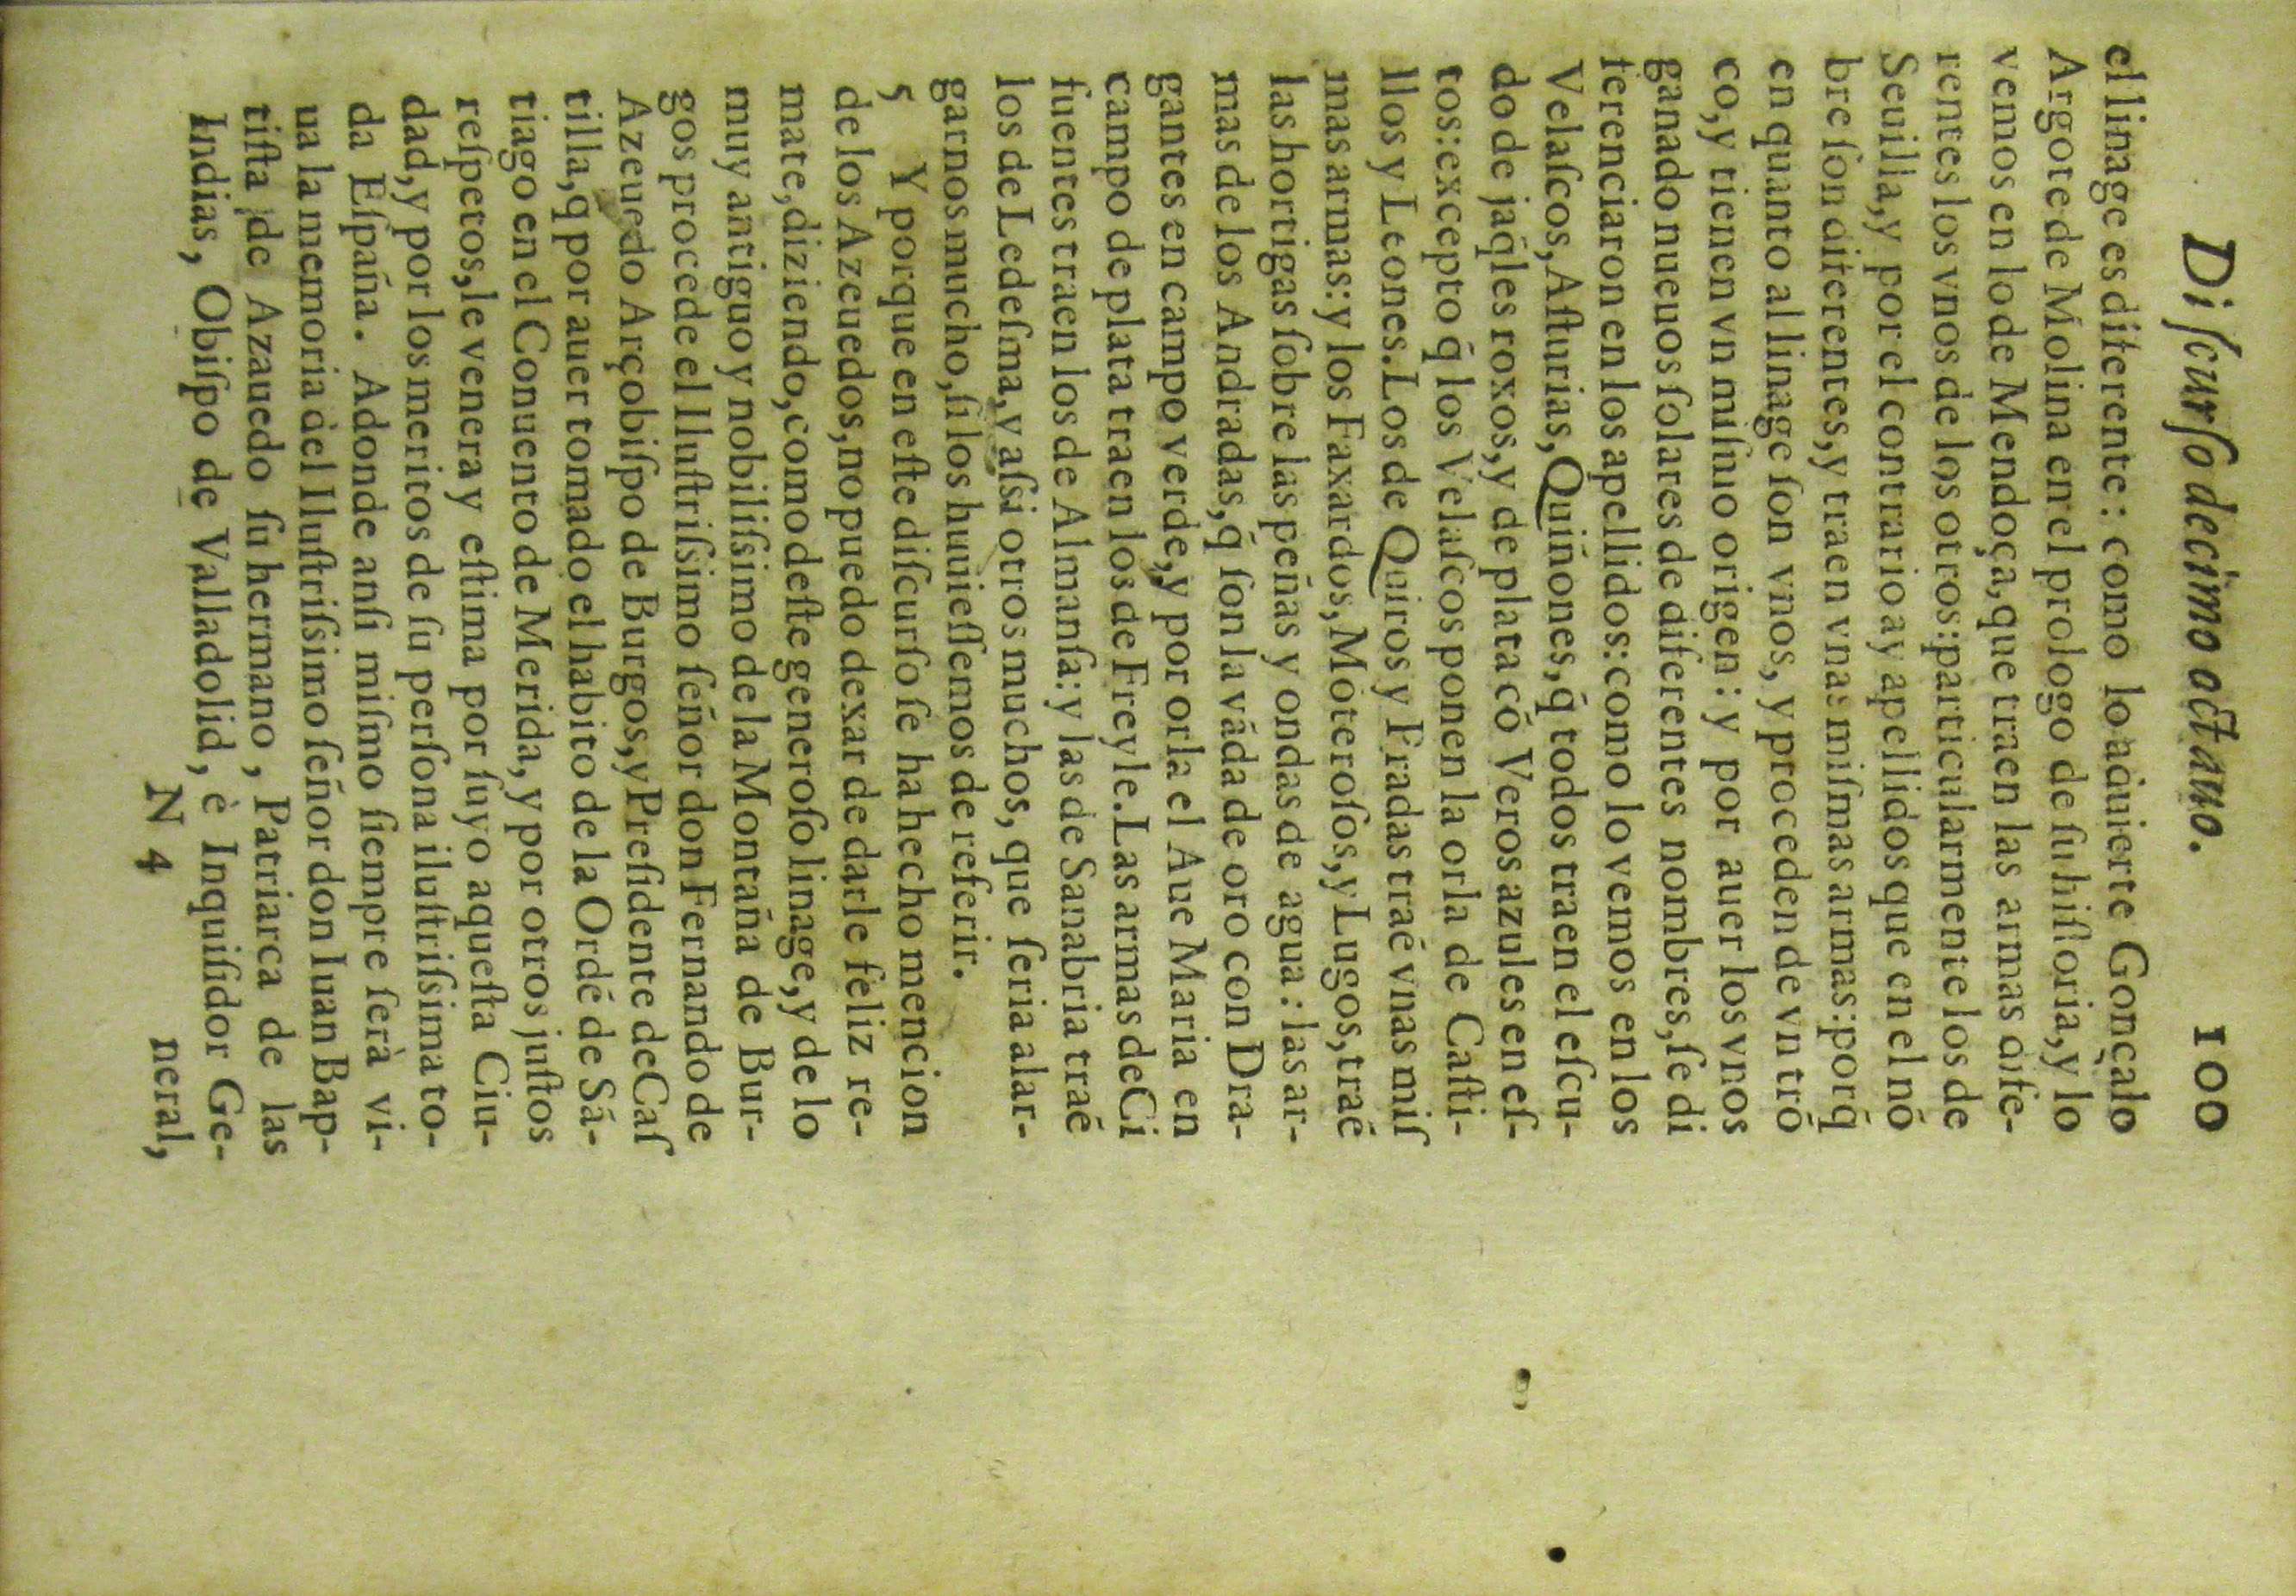 Diſcurſo decimo octauo. 100
el linage es diferente : como lo aduierte Gonçalo
Argote de Molina en el prologo de ſu hiſtoria, y lo
vemos en lo de Mendoça, que traen las armas dife-
rentes los vnos de los otros: particularmente los de
Seuilla, y por el contrario ay apellidos que en el nō
bre ſon diferentes, y traen vnas miſmas armas: porq̄
en quanto al linage ſon vnos, y proceden de vn trō
co, y tienen vn miſmo origen : y por auer los vnos
ganado nueuos ſolares de diferentes nombres, ſe di
ferenciaron en los apellidos: como lo vemos en los
Velaſcos, Aſturias, Quiñones, q̄ todos traen el eſcu-
do de jaq̄les roxos, y de plata cō Veros azules en eſ-
tos: excepto q̄ los Velaſcos ponen la orla de Caſti-
llos y Leones. Los de Quiros y Fradas traē vnas miſ
mas armas: y los Faxardos, Mōteroſos, y Lugos, traē
las hortigas ſobre las peñas y ondas de agua : las ar-
mas de los Andradas, q̄ ſon la vāda de oro con Dra-
gantes en campo verde, y por orla el Aue Maria en
campo de plata traen los de Freyle. Las armas de Ci
fuentes traen los de Almanſa: y las de Sanabria traē
los de Ledeſma, y aſsi otros muchos, que ſeria alar-
garnos mucho, ſi los huuieſſemos de referir.
5 Y porque en eſte diſcurſo ſe ha hecho mencion
de los Azeuedos, no puedo dexar de darle feliz re-
mate, diziendo, como deſte generoſo linage, y de lo
muy antiguo y nobiliſsimo de la Montaña de Bur-
gos procede el Iluſtriſsimo ſeñor don Fernando de
Azeuedo Arçobiſpo de Burgos, y Preſidente de Caſ
tilla, q por auer tomado el habito de la Ordē de Sā-
tiago en el Conuento de Merida, y por otros juſtos
reſpetos, le venera y eſtima por ſuyo aqueſta Ciu-
dad, y por los meritos de ſu perſona iluſtriſsima to-
da Eſpaña. Adonde anſi miſmo ſiempre ſerà vi-
ua la memoria del Iluſtriſsimo ſeñor don Iuan Bap-
tiſta de Azauedo ſu hermano, Patriarca de las
Indias, Obiſpo de Valladolid, è Inquiſidor Ge-
N 4 neral,